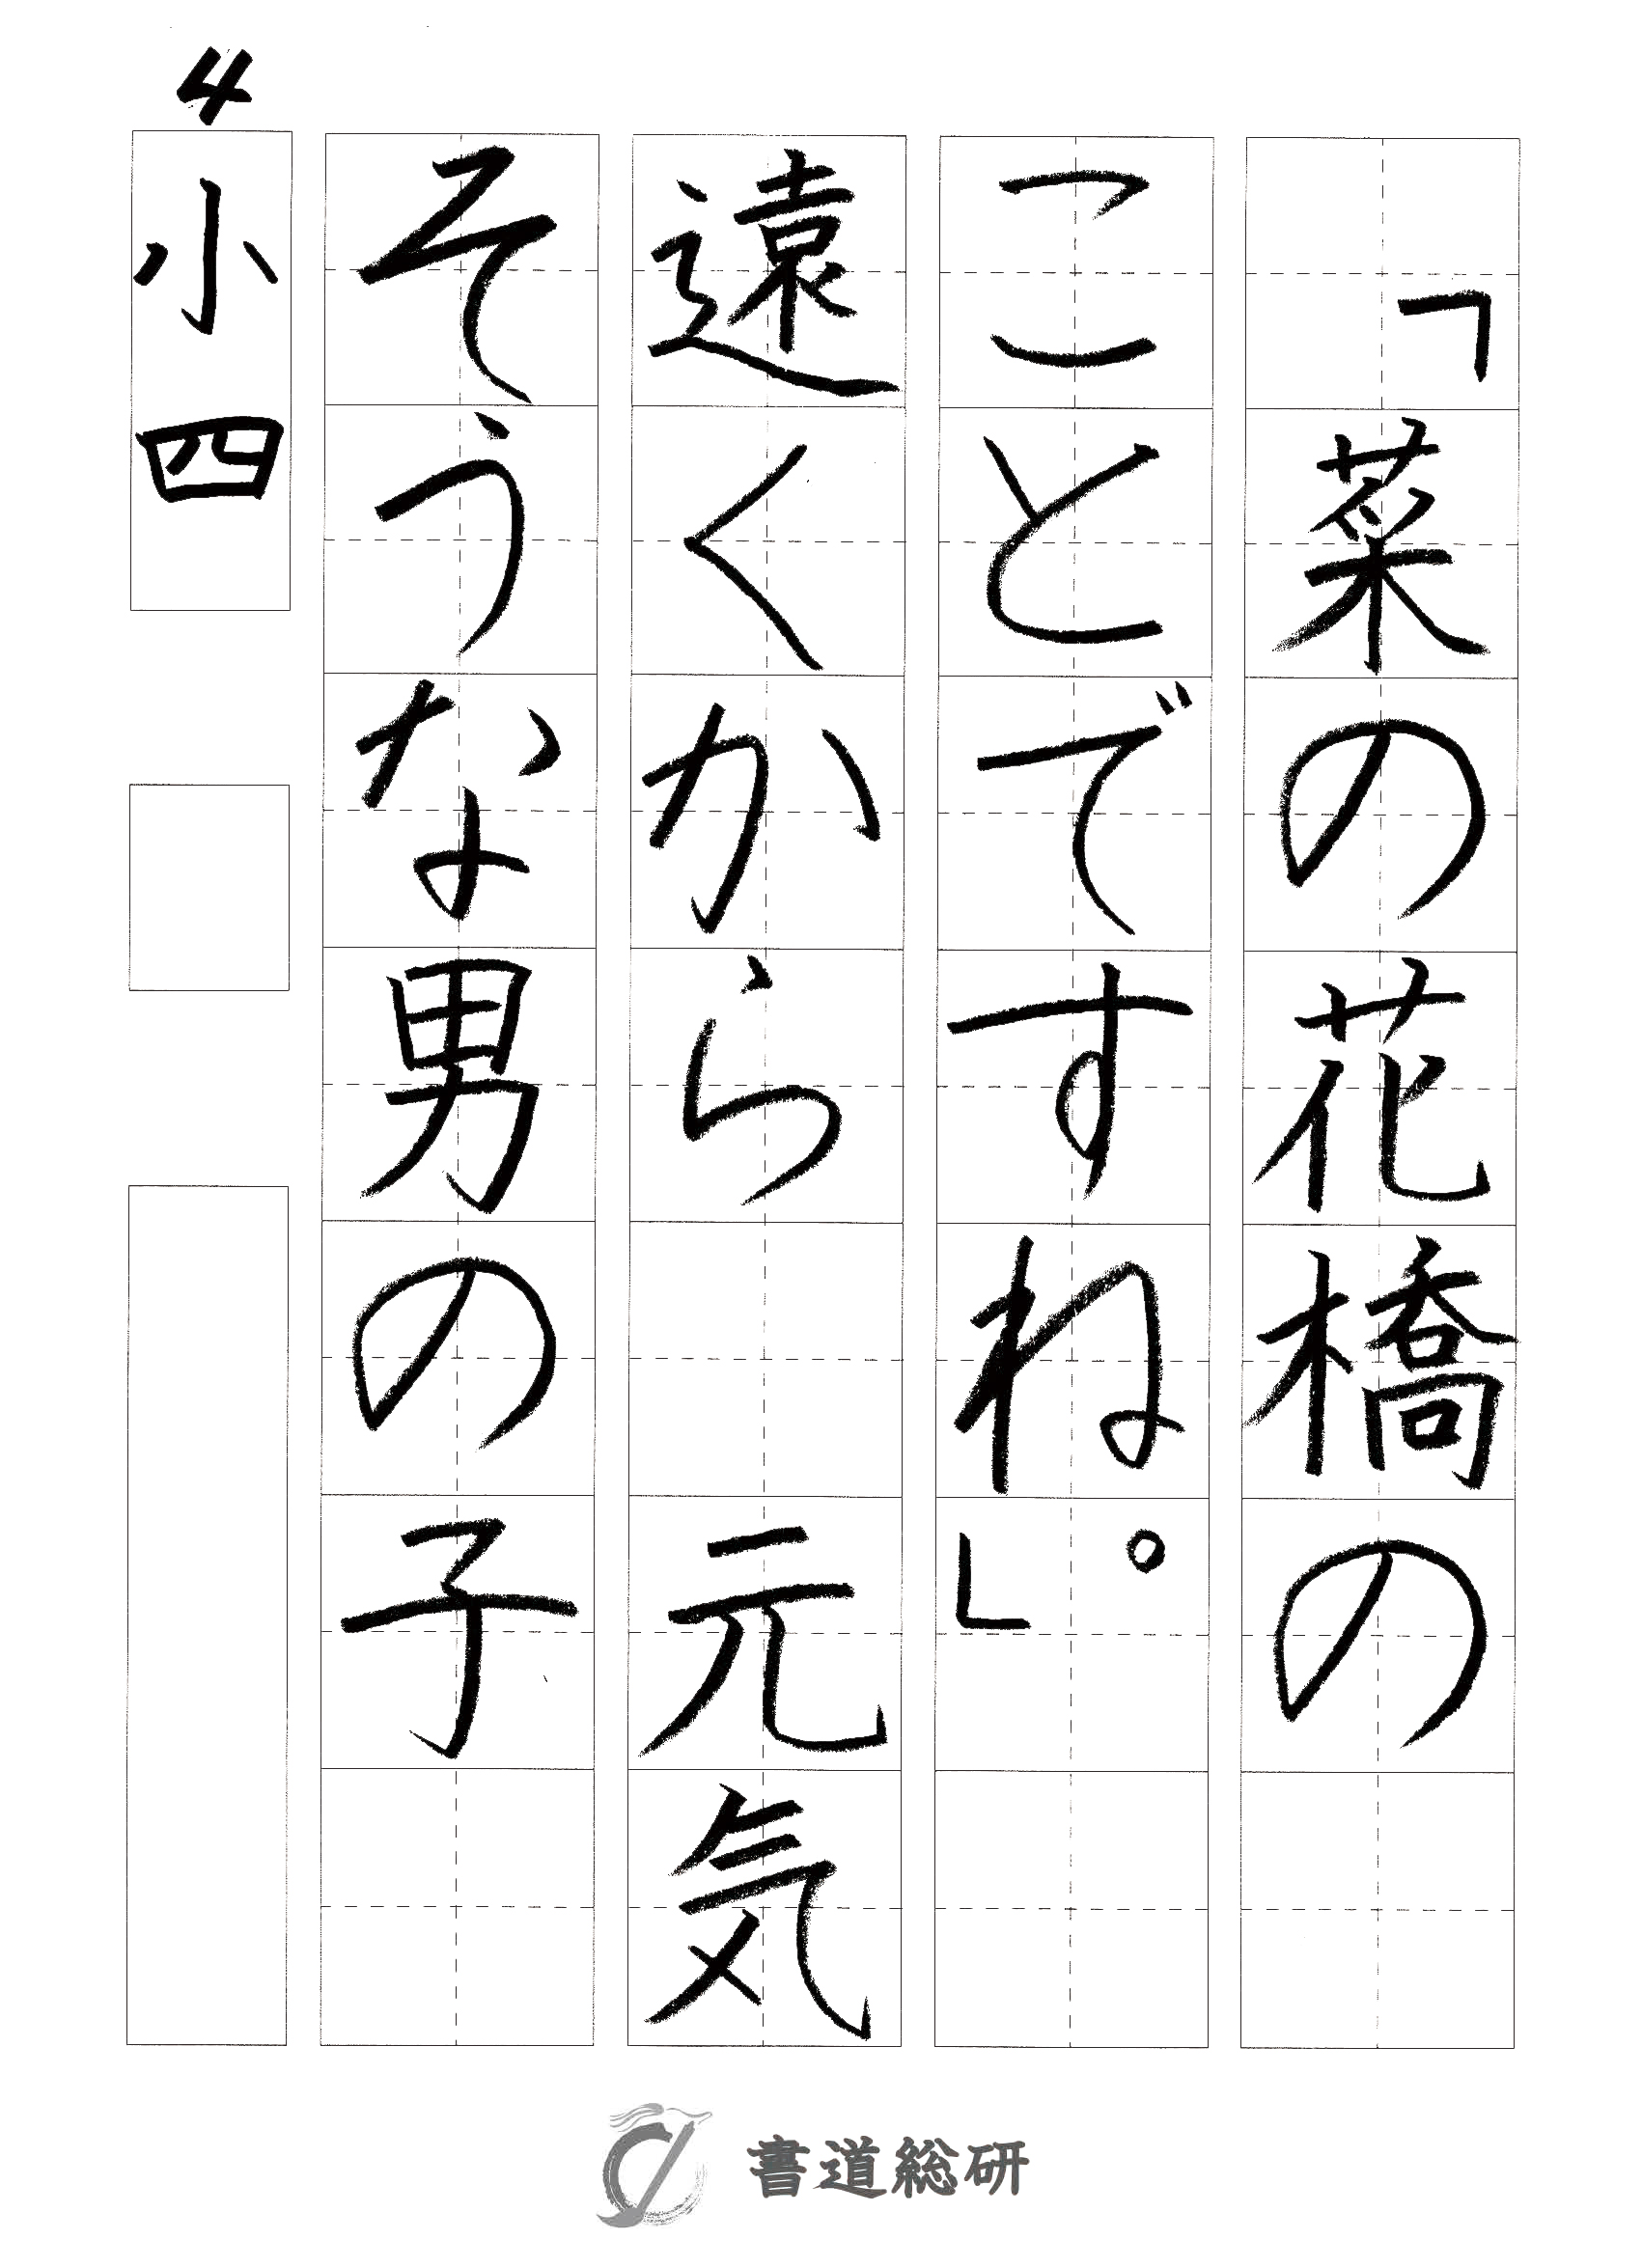 「菜の花橋の
ことですね。」
遠くから　元気
そうな男の子
4
小四
書道総研